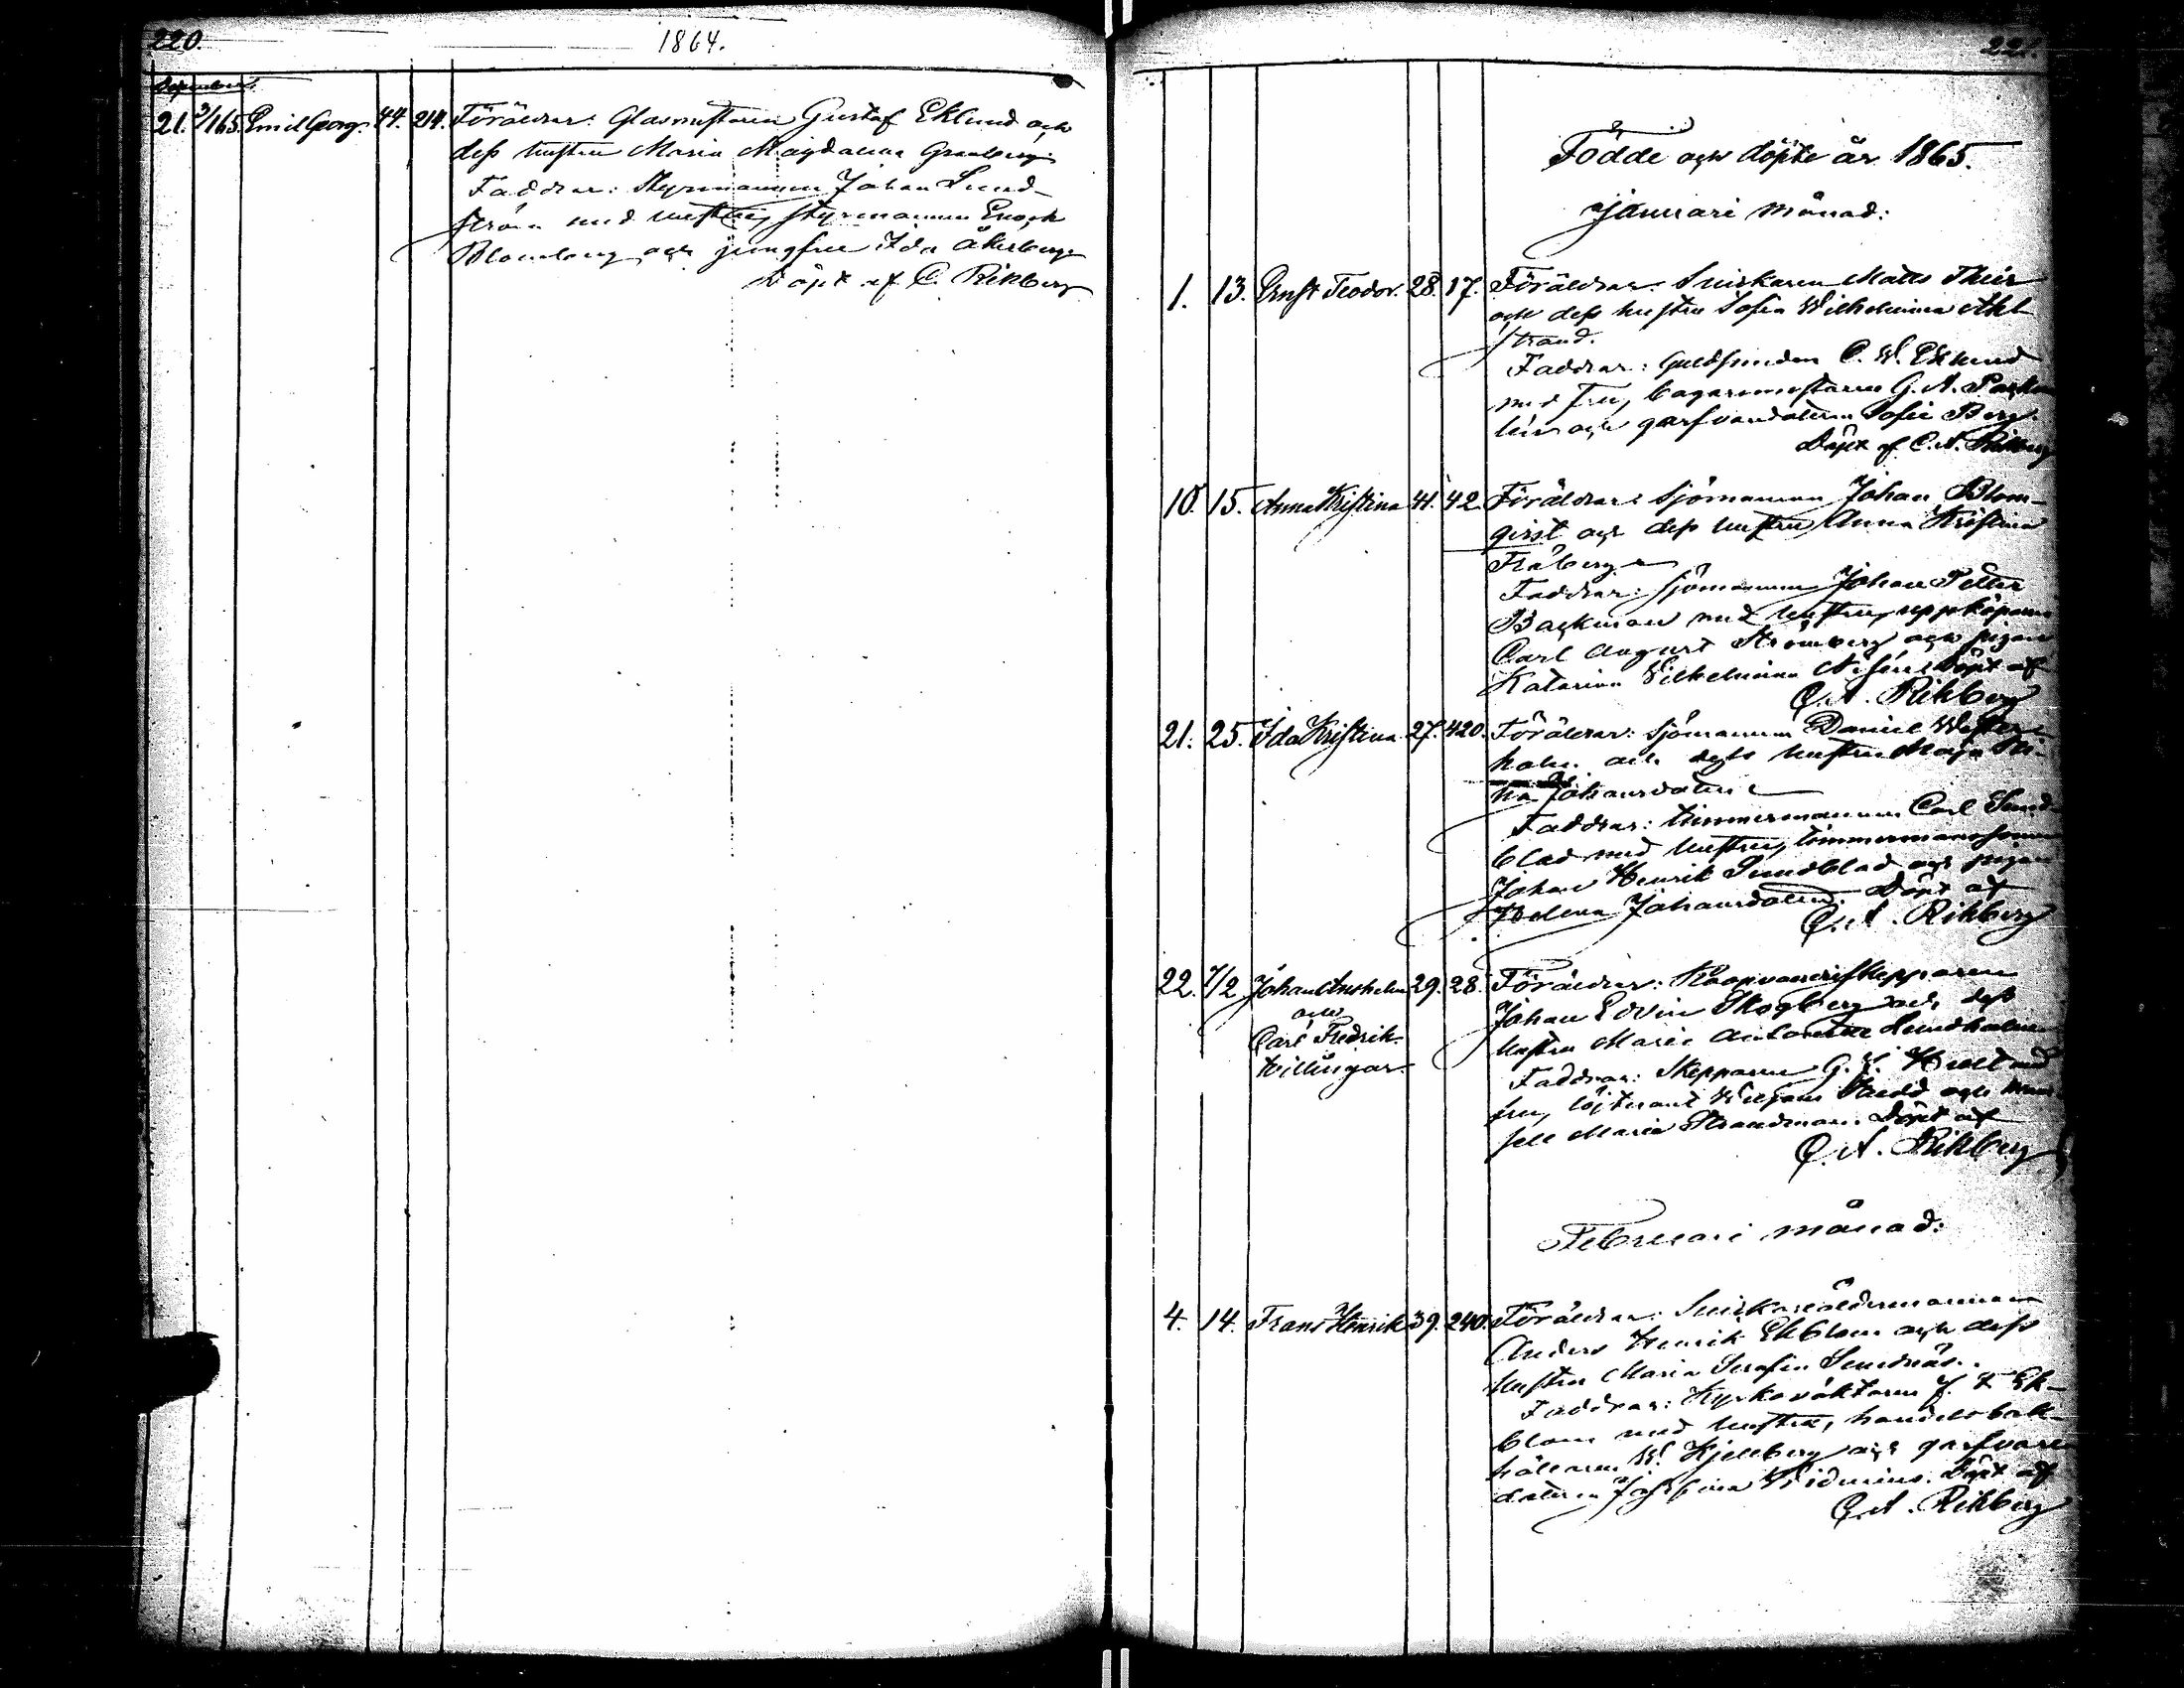 220.
1864.
December
21. 3/1 65. Emil Georg. 44. 214. Föräldrar: Glasmästaren Gustaf Eklund och
dess hustru Maria Magdalena Granberg.
Faddrar: Styrmannen Johan Lund-
ström med hustru, styrmannen Enock
Blomberg och jungfru Ida Åkerberg
Döpt af C. Rikberg
221.
Födde och döpte år 1865.
Januari månad:
1. 13. Ernst Teodor. 28. 17. Föräldrar: Snickaren Matts
och dess hustru Sofia Wilhelmina Ahl-
strand.
Faddrar: Guldsmeden C. W. Eklund
med fru, bagaremästaren G. A.
och garfvaredottren Sofie Berg.
Döpt af C. A. Rikberg
10. 15. Anna Kristina 41. 42. Föräldrar: Sjömannen Johan Blom-
qvist och dess hustru Anna Kristina
Fråberg
Faddrar: Sjömannen Johan Petter
Backman med hustru, uppköparen
Carl August Strömberg och pigan
Katarina Vilhelmina Döpt af
C. A. Rikberg
21. 25. Ida Kristina 27. 420. Föräldrar: Sjömannen Daniel Wester-
holm och dess hustru Maja
Johansdotter
Faddrar: timmermannen Carl Sund-
blad med hustru, timmermanssonen
Johan Henrik Sundblad och pigan
Helena Johansdotter. Döpt af
C. A. Rikberg
22. 7/2 Johan Anshelm 29. 28. Föräldrar: Koopvaerdiskepparen
och
Johan Edvin Skogberg och dess
Carl Fredrik
hustru Maria Antonette Lundholm
tvillingar.
Faddrar: Skepparen G. med
fru, löjtnant och mam-
sell Maria Strandman. Döpt af
C. A. Rikberg
Februari månad:
4. 14. Frans Henrik 39. 240. Föräldrar: Snickareåldermannen
Anders Henrik Ekblom och dess
hustru Maria Serafia Sundnäs.
Faddrar: Kyrkovaktaren J. F. Ek-
blom med hustru, handelsbok-
hållaren W. Kjellberg och garfvare-
dottren Josefina Widenius. Döpt af
C. A. Rikberg